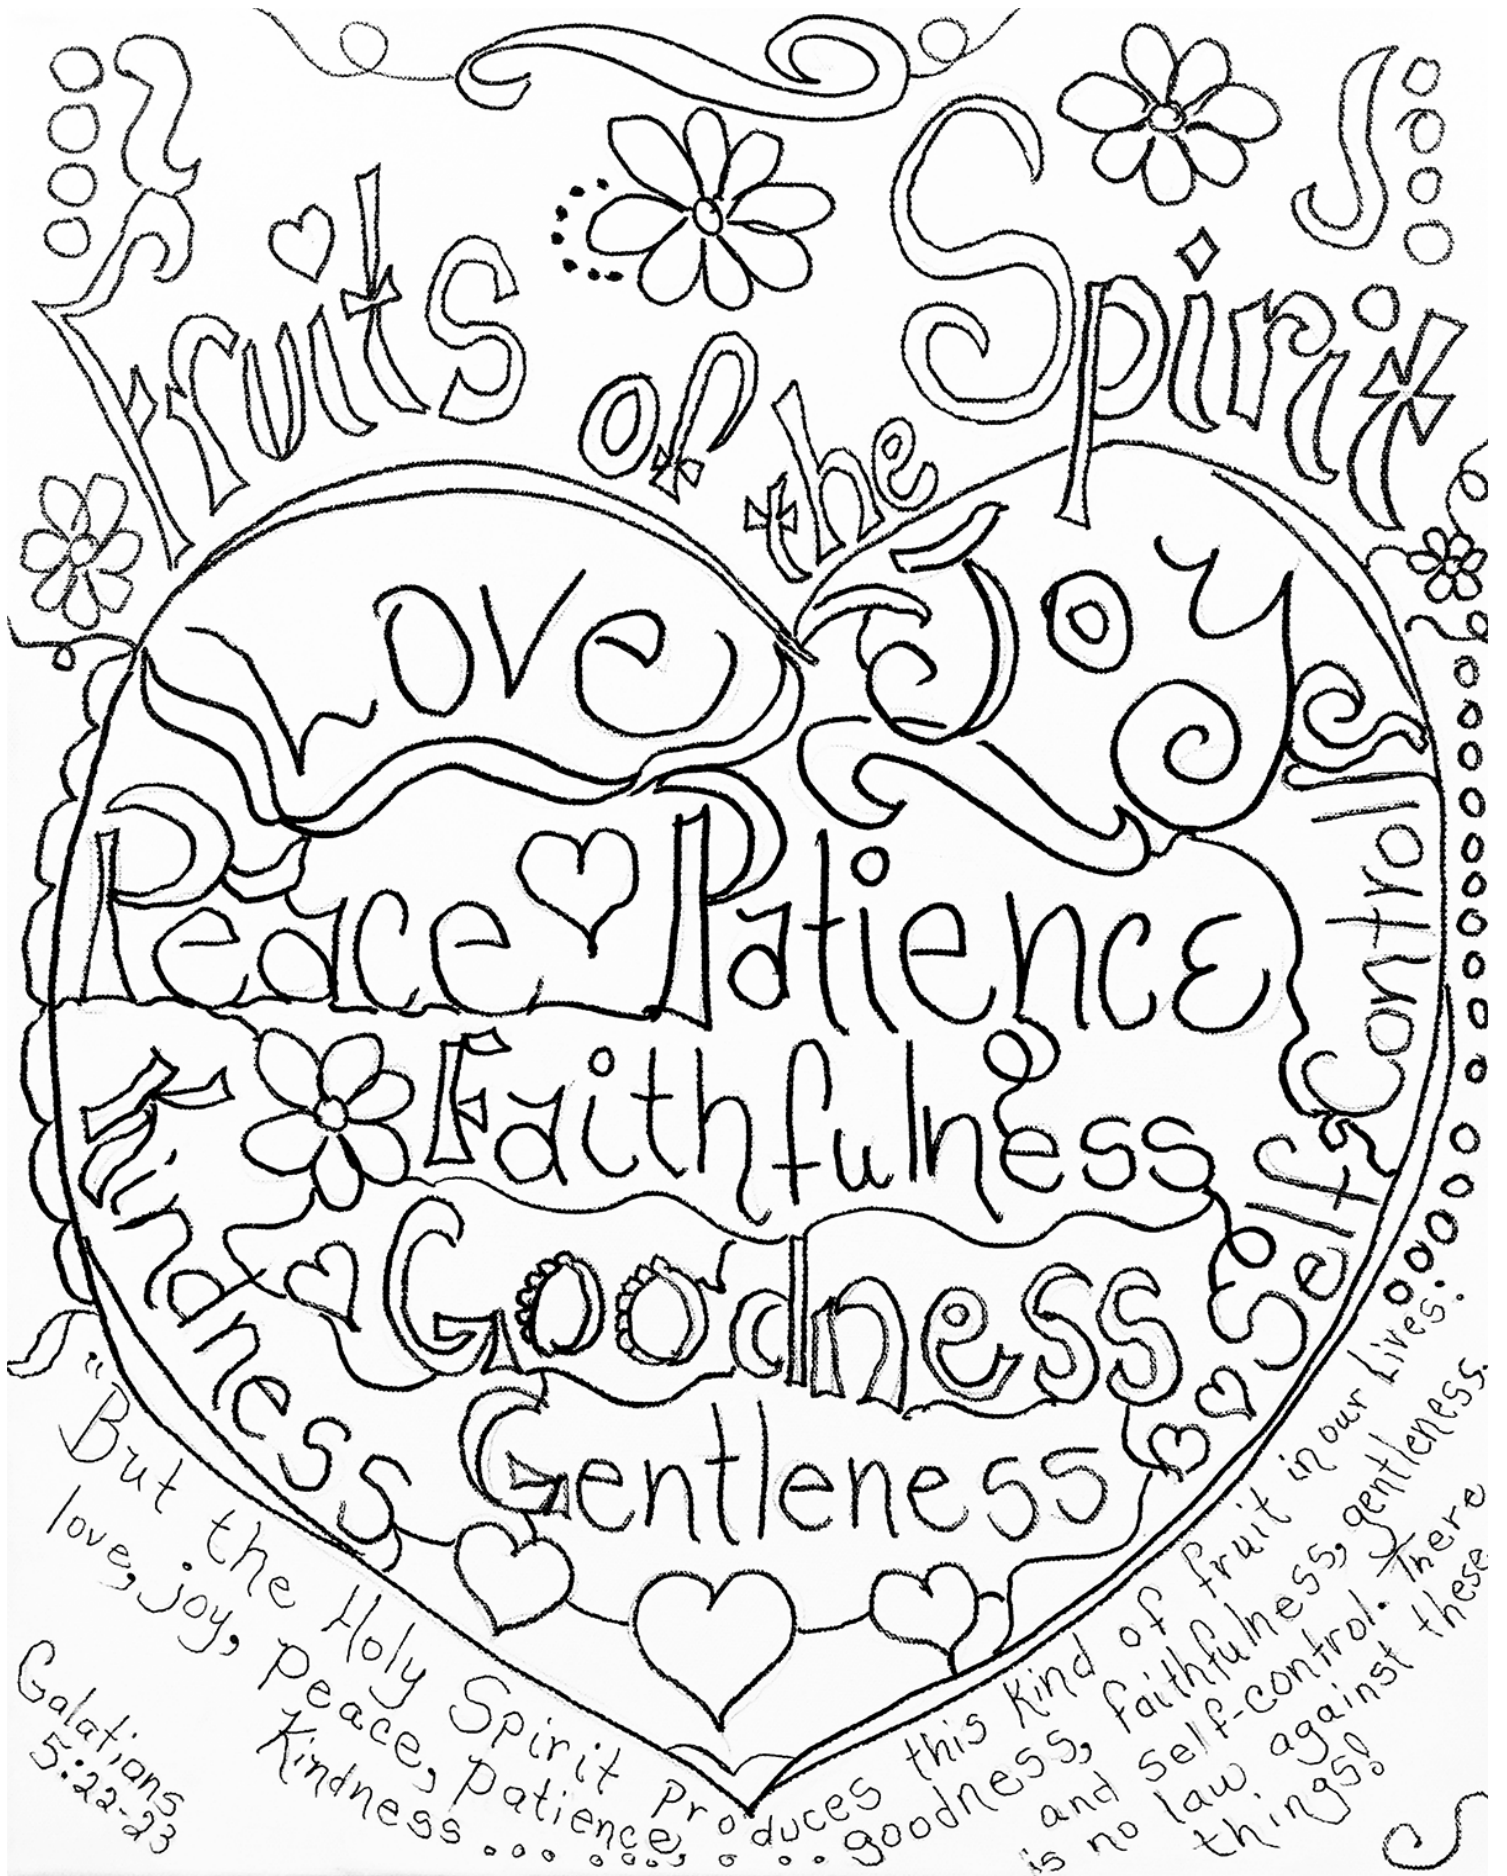 Fruits of the Spirit
Love Joy
Peace Patience
Faithfulness
Kindness
Goodness
Gentleness
Self Control
"But the Holy Spirit produces this kind of fruit in our lives:
love, joy, peace, patience,
Kindness... goodness, faithfulness, gentleness,
and self-control. There
is no law against these
things!
Galatians
5:22-23